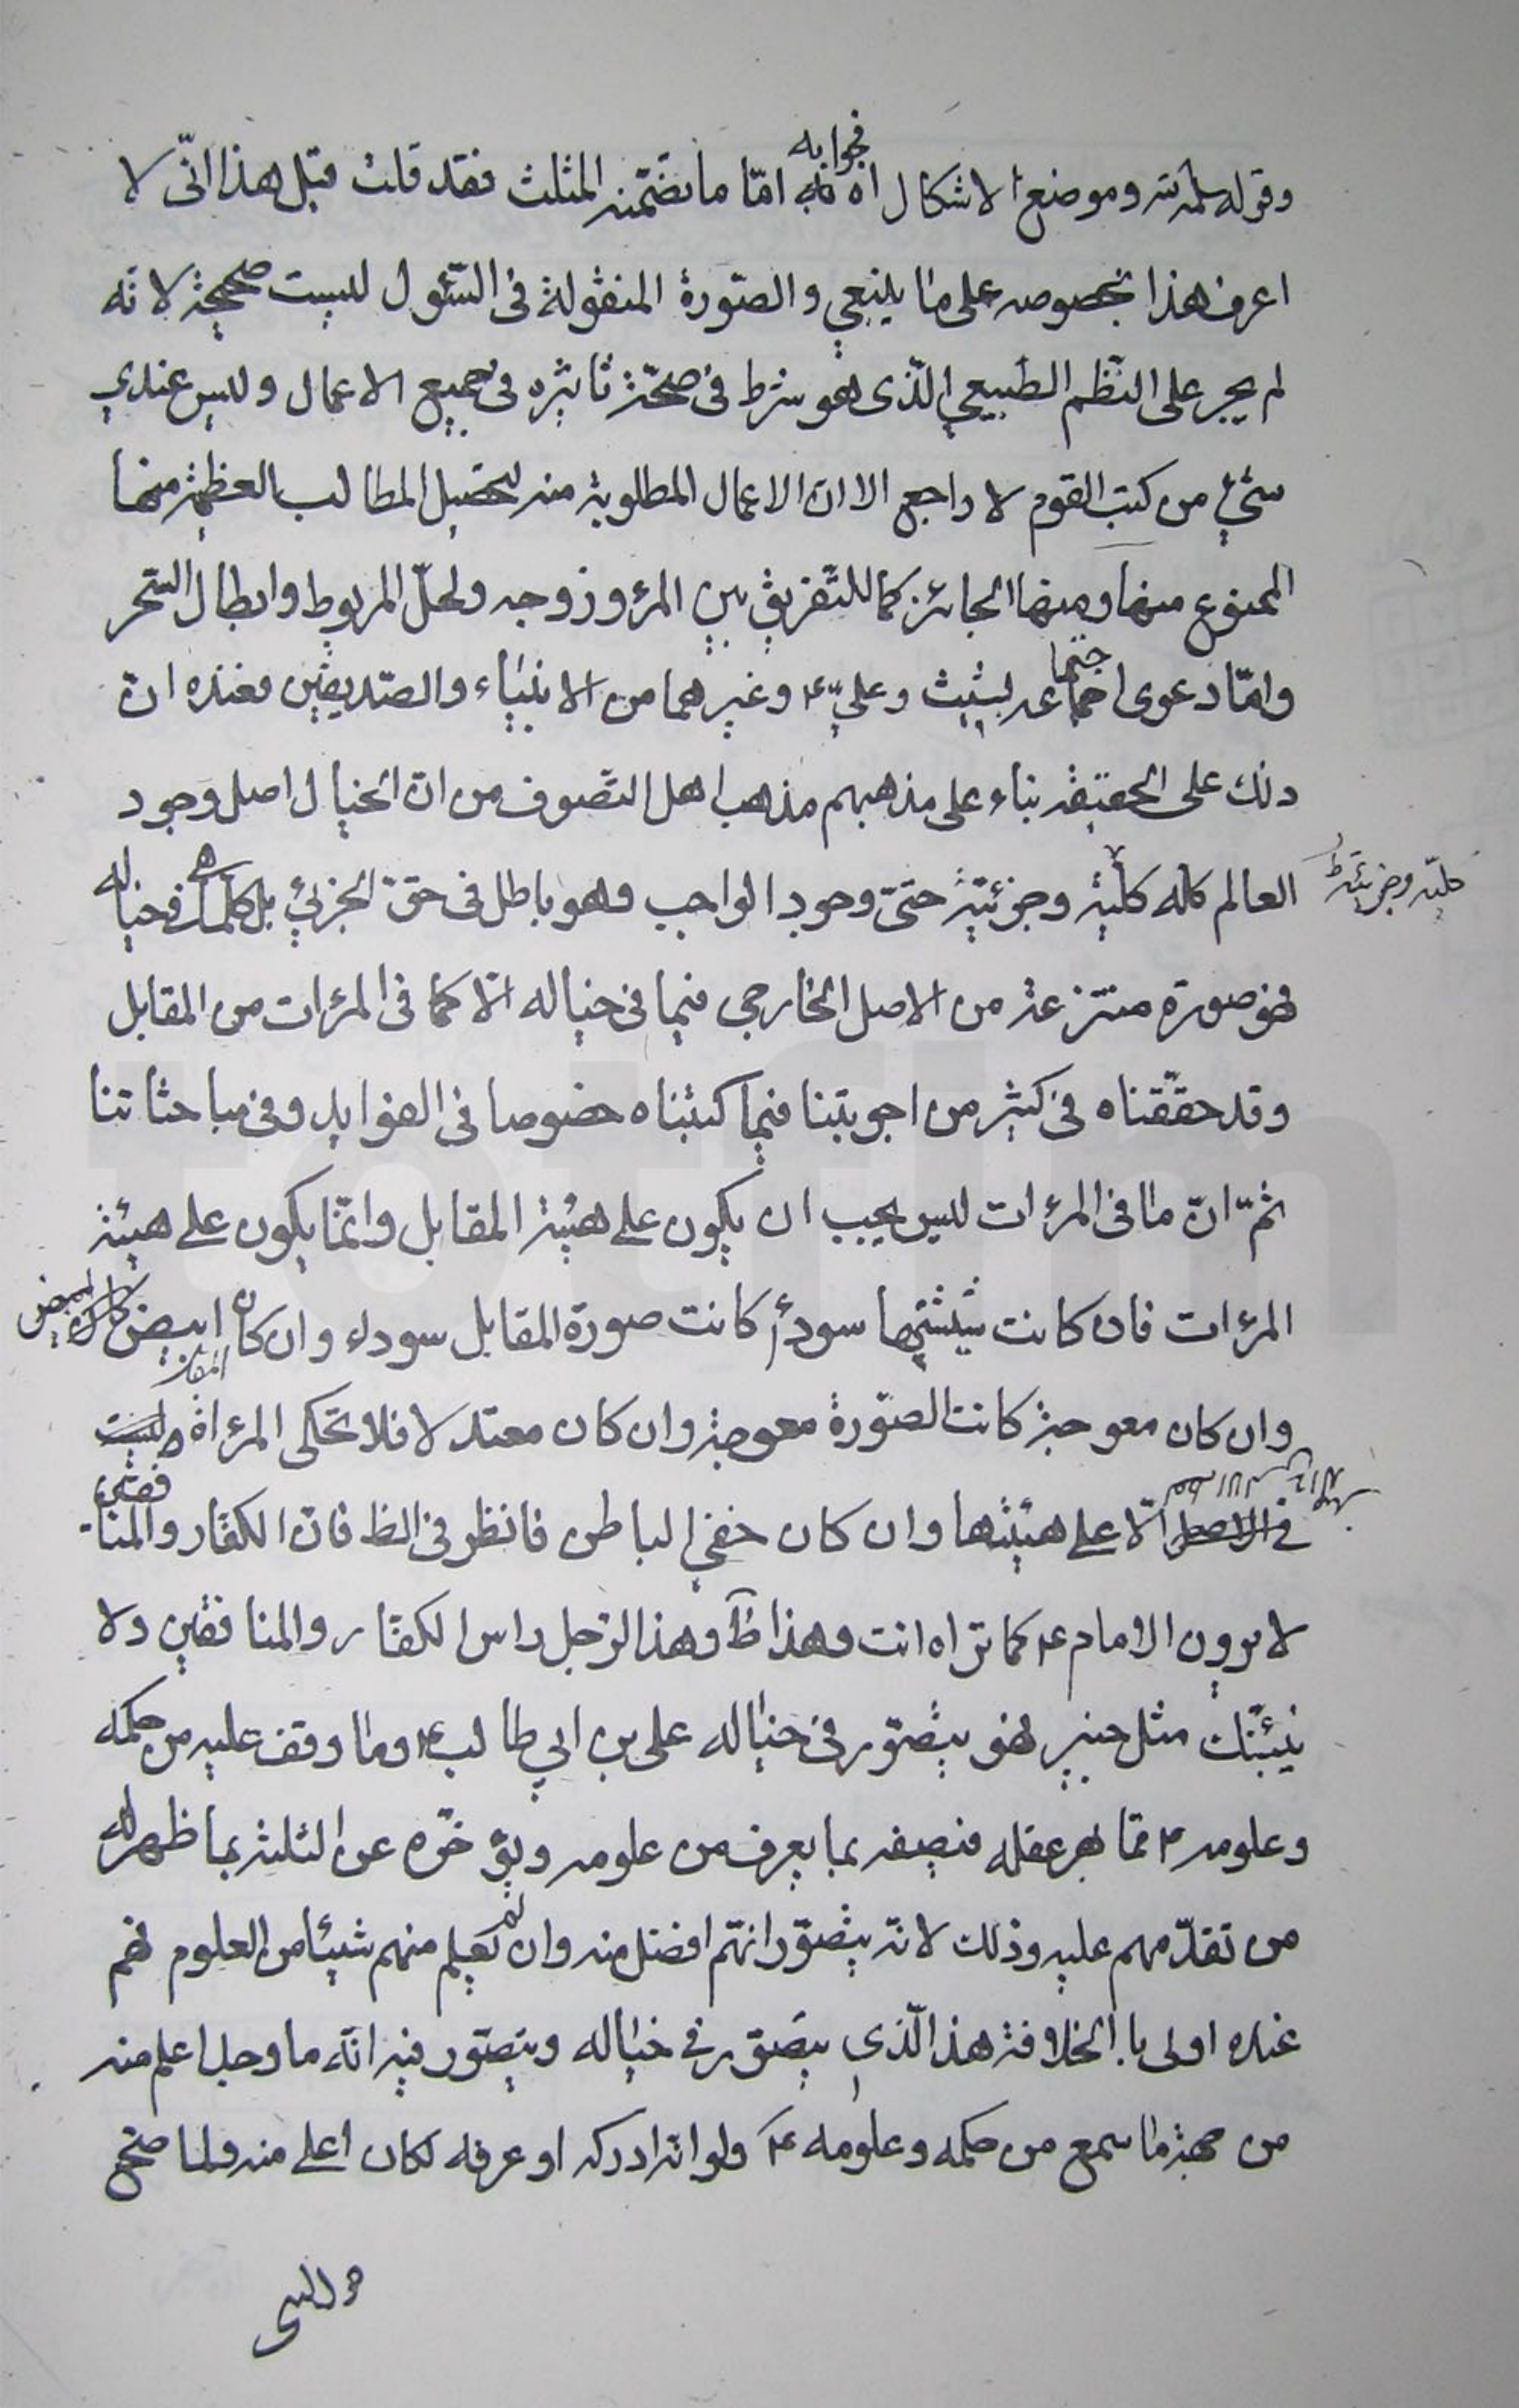 فجوابه
وقوله سلمه الله وموضع الاشكال اه امّا ما تضمّنه المثلث فقد قلت قبل هذا انّى لا
اعرف هذا بخصوصه على ما ينبغي والصّورة المنقولة فى السّئول ليست صحيحة لانّه
لم يجر على النّظم الطّبيعي الّذى هو شرط فى صحّة تاثيره فى جميع الاعمال وليس عندي
شئ من كتب القوم لا راجع الا ان الاعمال المطلوبة منه لتحصيل المطالب العظيمة منها
الممنوع منها ومنها الجائز كما للتّفريق بين المرء وزوجه ولحلّ المربوط وابطال السّحر
وامّا دعوى اجتماعه بشيث وعليّ ع وغيرهما من الانبياء والصّديقين فعنده انّ
ذلك على الحقيقة بناء على مذهبهم مذهب اهل التّصوف من انّ الخيال اصل وجود
العالم كله كليّة وجزئيّة حتىّ وجود الواجب وهو باطل فى حقّ الجزئي بل كلما فى خياله
كليّه وجزئيّه
فهو صورة منتزعة من الاصل الخارجى فيما فى خياله الّا كما فى المرءات من المقابل
وقد حقّقناه فى كثير من اجوبتنا فيما كتبناه خصوصا فى الفوايد وفى مباحثاتنا
ثمّ انّ ما فى المرءات ليس يجب ان يكون على هيئة المقابل وانّما يكون على هيئة
المرءات فان كانت شيشتها سوداء كانت صورة المقابل سوداء وان كان ابيض
وان كان معوجة كانت الصّورة معوجة وان كان معتدلا فلا تحكى المرءاة
المقابل
الّا على هيئتها وان كان خفي الباطن فانظر فى الظ فانّ الكفّار والمنافقين
لا يرون الامام ع كما تراه انت وهذا ظ وهذا الرّجل راس الكفّار والمنافقين ولا
ينبّئك مثل خبير فهو يتصّور فى خياله على بن ابي طالب ع وما وقف عليه من حكمه
وعلومه ع ممّا بهر عقله فيصفه بما يعرف من علومه ويؤخّره عن الثلثة بما ظهر له
من تقدّمهم عليه وذلك لانّه يتصّور انهّم افضل منه وان لم يعلم منهم شيئا من العلوم فهم
عنده اولى بالخلافة هذا الّذى يتصّور فى خياله ويتصّور فيه انّه ما وجد اعلم منه
من جهة ما سمع من حكمه وعلومه ع ولو انّه ادركه او عرفه لكان اعلى منه ولما صحّح